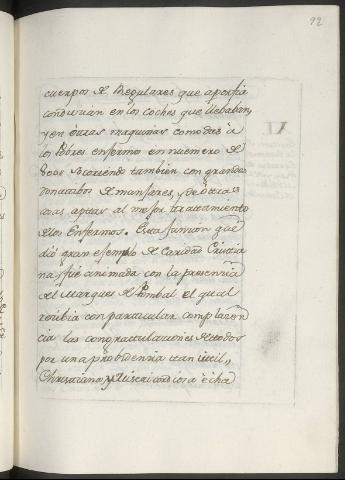 92
cuerpos de Regulares que aporfia
conducian en los coches que llebaban,
y en otras maquinas comodas a
los Pobres enfermos en numero de
socoriendo tambien con grandes
donativos de manjares, y de otras
cosas aptas al mejor trattamiento
de los Enfermos. Esta funcion que
dió gran esemplo de Caridad Cristia
na fué animada con la presencia
del Marques de Pombal el qual
recibia con particular complazen
cia las congrattulaciones de todos
por una probidencia tan util,
Christiana, y